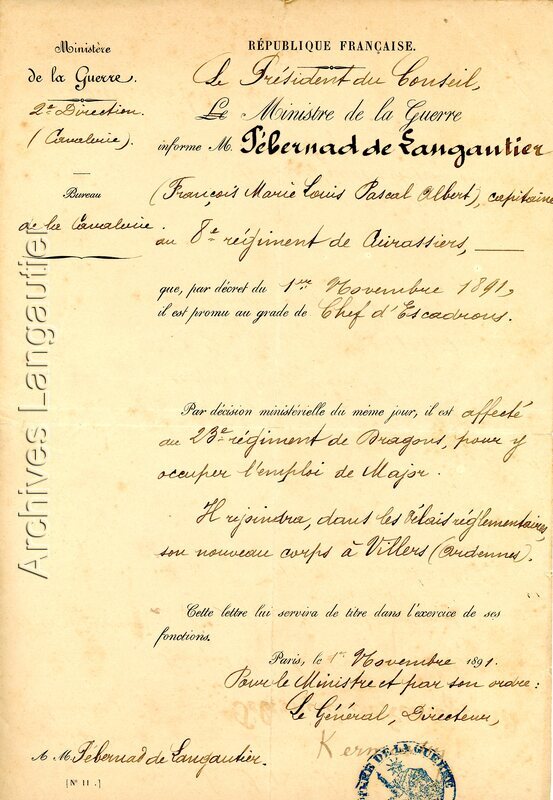 Ministère
de la Guerre.
2e Direction.
(Cavalerie).
Bureau
de la Cavalerie.
RÉPUBLIQUE FRANÇAISE.
Le Président du Conseil,
Le Ministre de la Guerre
informe M. Pébernad de Langautier
(François Marie Louis Pascal Albert), capitaine
au 8e régiment de Cuirassiers,
que, par décret du 1er Novembre 1891,
il est promu au grade de Chef d'Escadrons.
Par décision ministérielle du même jour, il est affecté
au 23e régiment de Dragons, pour y
occuper l'emploi de Major.
Il rejoindra, dans les délais réglementaires,
son nouveau corps à Villers (Ardennes).
Cette lettre lui servira de titre dans l'exercice de ses
fonctions.
Paris, le 1er Novembre 1891.
Pour le Ministre et par son ordre:
Le Général, Directeur,
A M. Pébernad de Langautier.
[N° 11.]
DE LA GUERRE
Archives Langautier